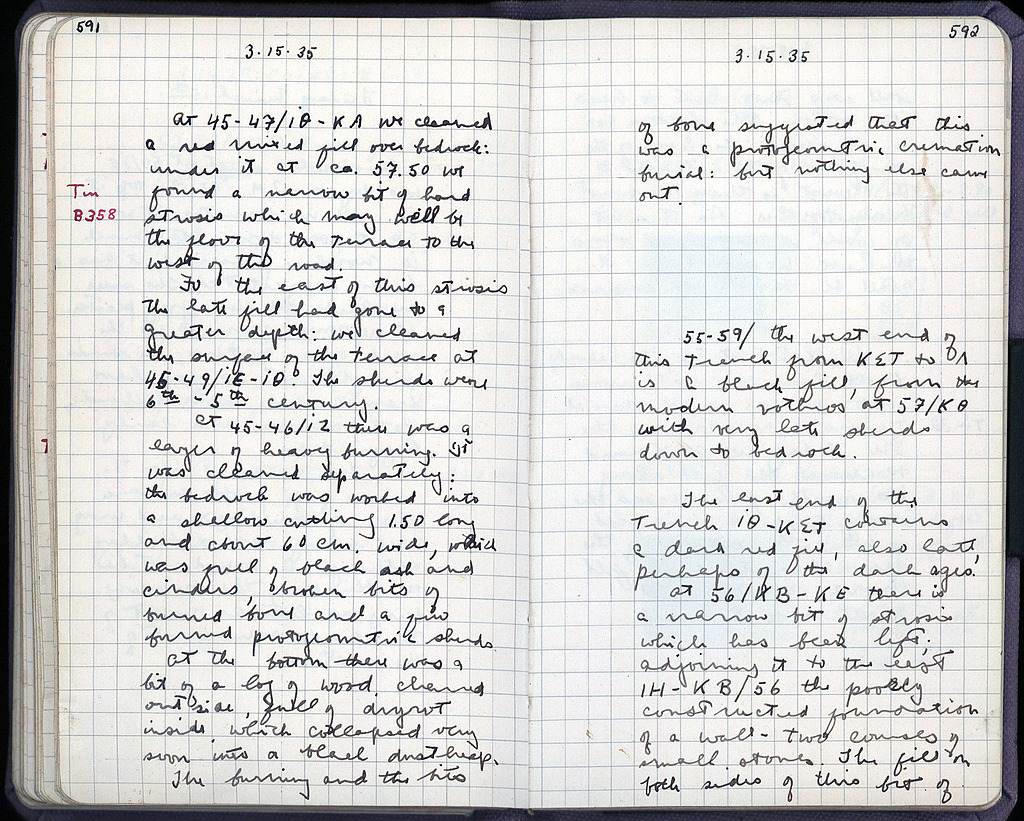 591
3·15·35
At 45-47/ΙΘ-ΚΑ we cleaned
a red mixed fill over bedrock:
under it at ca. 57.50 we
found a narrow bit of hard
Tin
B358
strosis which may well be
the floor of the terrace to the
west of the road.
To the east of this strosis
the late fill had gone to a
greater depth: we cleaned
the surface of the terrace at
45-49/ΙΕ-ΙΘ. The sherds were
6th - 5th century.
At 45-46/ΙΖ there was a
layer of heavy burning. It
was cleaned separately:
the bedrock was worked into
a shallow cutting 1.50 long
and about 60 cm. wide, which
was full of black ash and
cinders, broken bits of
burned bone and a few
burned protogeometric sherds.
At the bottom there was a
bit of a log of wood, charred
outside, full of dryrot
inside, which collapsed very
soon into a black dustheap.
The burning and the bits
592
3·15·35
of bone suggested that this
was a protogeometric cremation
burial: but nothing else came
out.
55-59/ the west end of
this trench from ΚΣΤ to ΛΑ
is a black fill, from the
modern vothros at 57/ΚΘ
with very late sherds
down to bedrock.
The east end of the
trench ΙΘ-ΚΣΤ contains
a dark red fill, also late,
perhaps of the dark ages.
At 56/ΚΒ-ΚΕ there is
a narrow bit of strosis
which has been left;
adjoining it to the east
ΙΗ-ΚΒ/56 the poorly
constructed foundation
of a wall - two courses of
small stones. The fill on
both sides of this bit of